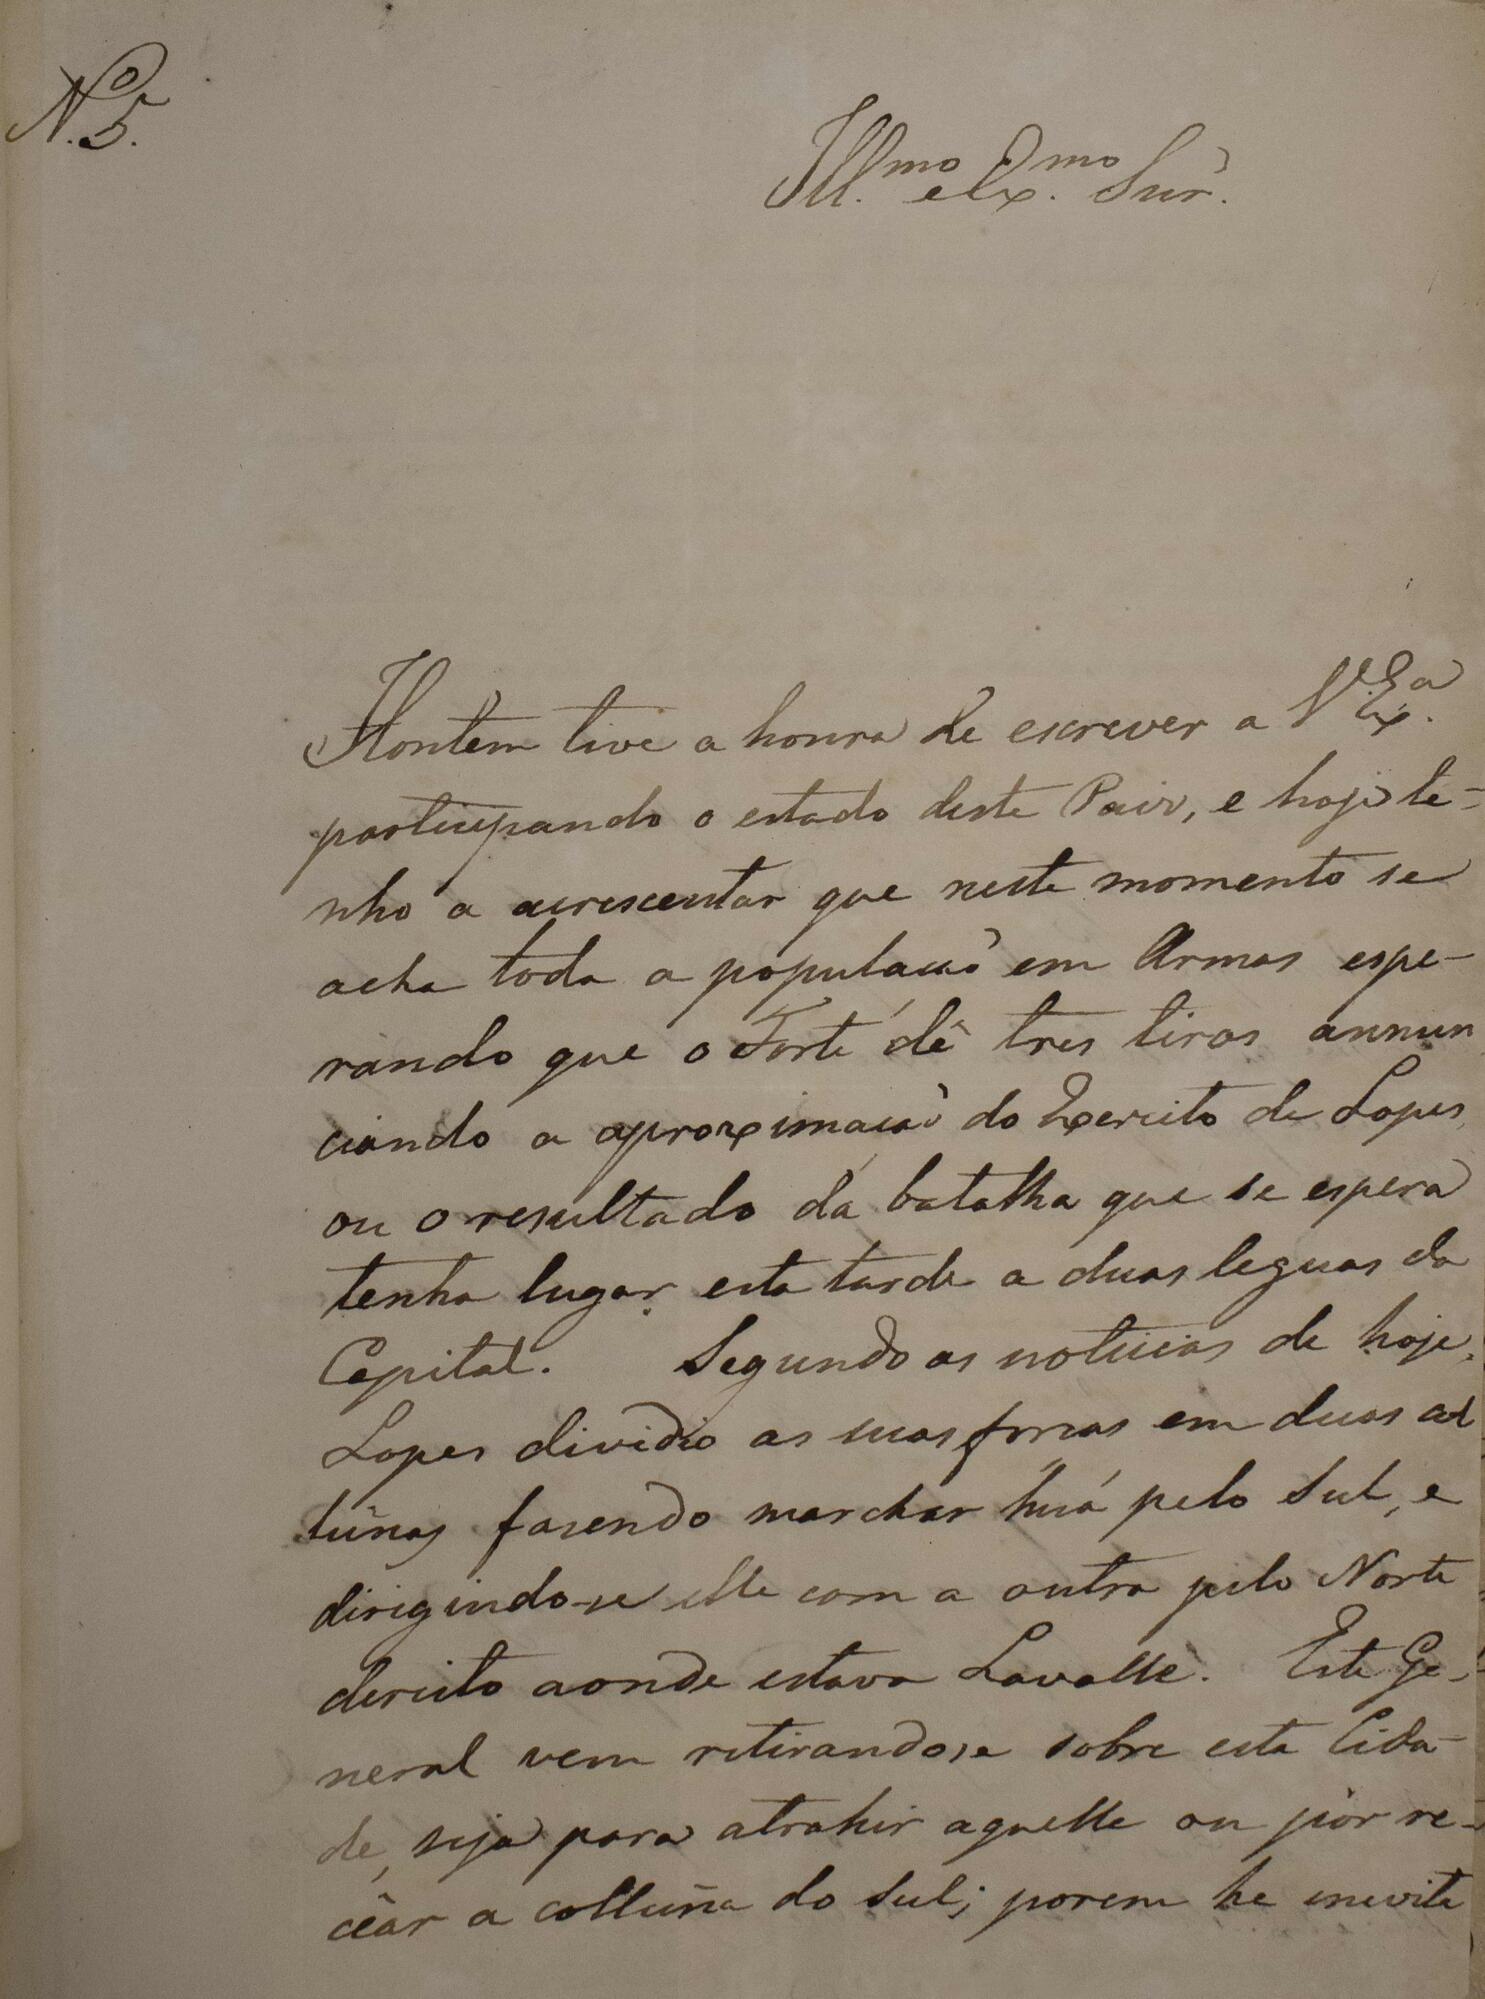 N.º 5.
Ill.mo e Ex.mo Snr̀.
Hontem tive a honra de escrever a V.Ex.a
participando o estado deste Paiz, e hoje te-
nho a acrescentar que neste momento se
acha toda a populacaò em Armas espe-
rando que o Forte dê tres tiros annun
ciando a aproximacaò do Exercito de Lopes,
ou o resultado da batalha que se espera
tenha lugar esta tarde a duas leguas da
Capital. Segundo as noticias de hoje,
Lopes dividio as suas forcas em duas col
lunas fasendo marchar huá pelo Sul, e
dirigindo-se elle com a outra pelo Norte
dereito aonde estava Lavalle. Este Ge-
neral vem retirandose sobre esta Cida-
de, seja para atrahir aquelle ou pòr re-
cêar a colluña do Sul; porem he inevita